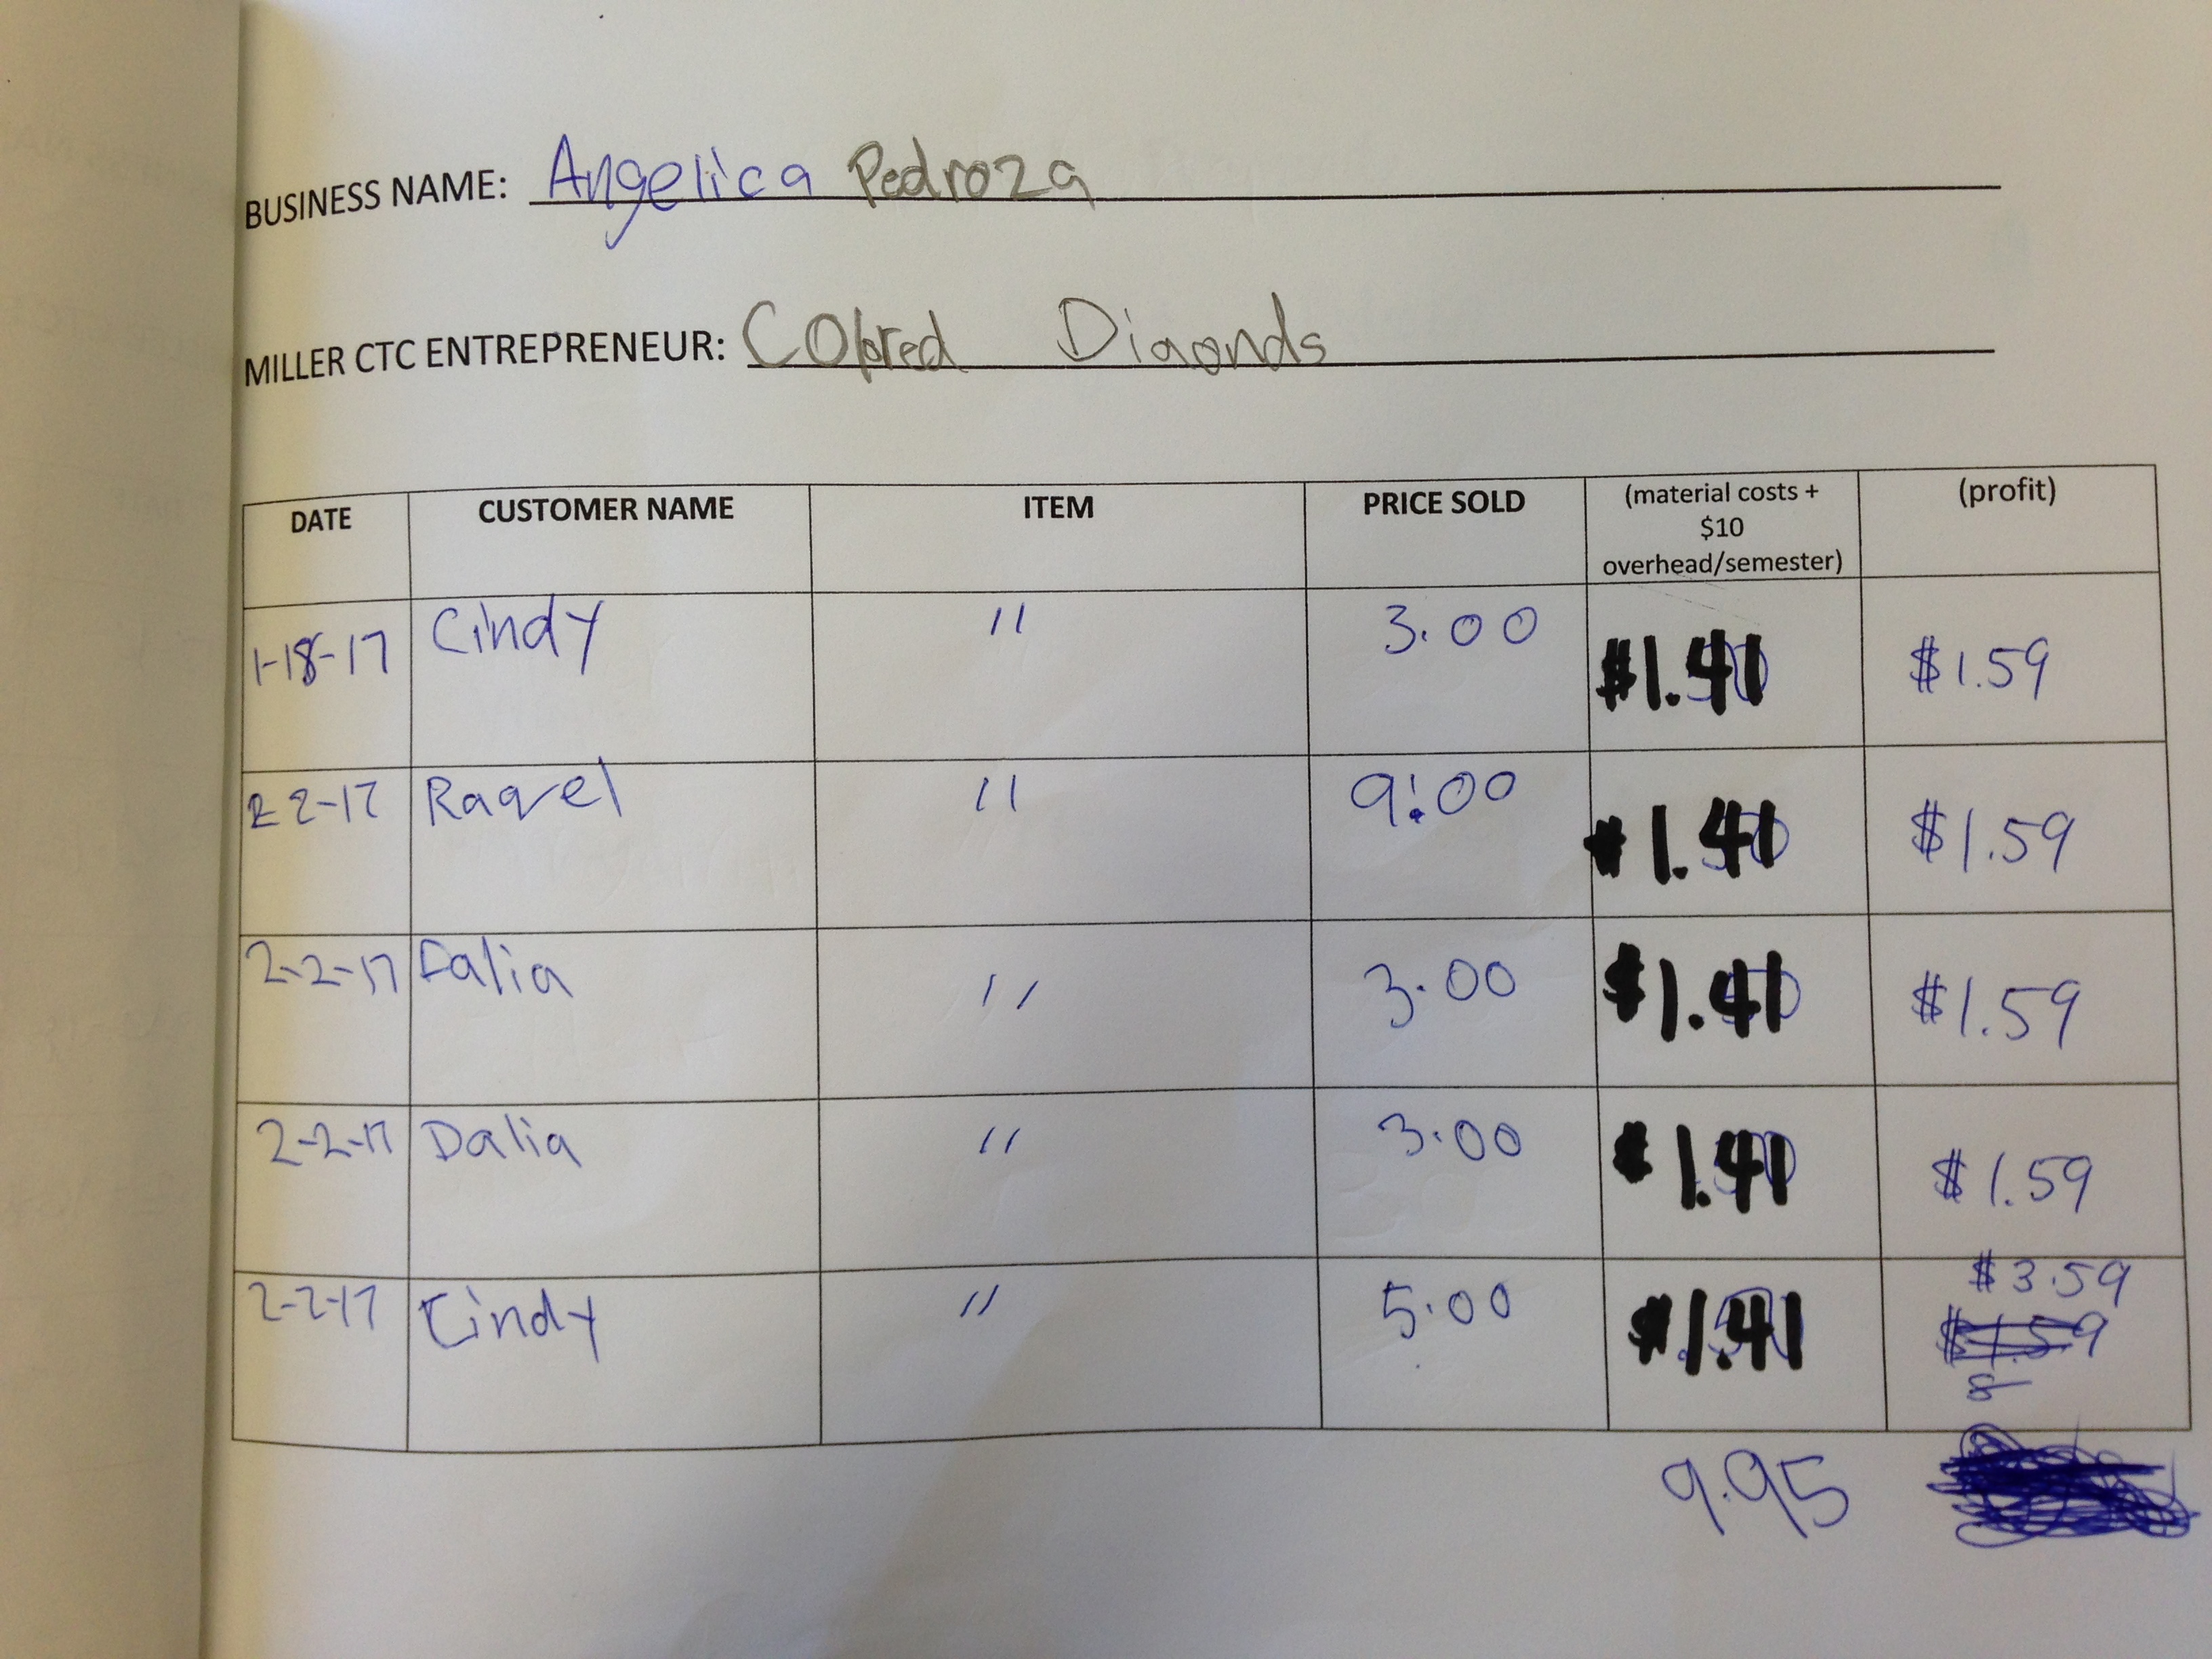 BUSINESS NAME: Angelica Pedroza
MILLER CTC ENTREPRENEUR: Colored Diaonds
DATE CUSTOMER NAME ITEM PRICE SOLD (material costs + $10 overhead/semester) (profit)
1-18-17 Cindy " 3.00 $1.41 $1.59
2 2-17 Raquel " 9.00 $1.41 $1.59
2-2-17 Dalia " 3.00 $1.41 $1.59
2-2-17 Dalia " 3.00 $1.41 $1.59
2-2-17 Cindy " 5.00 $1.41 $3.59
$1.59
8
9.95